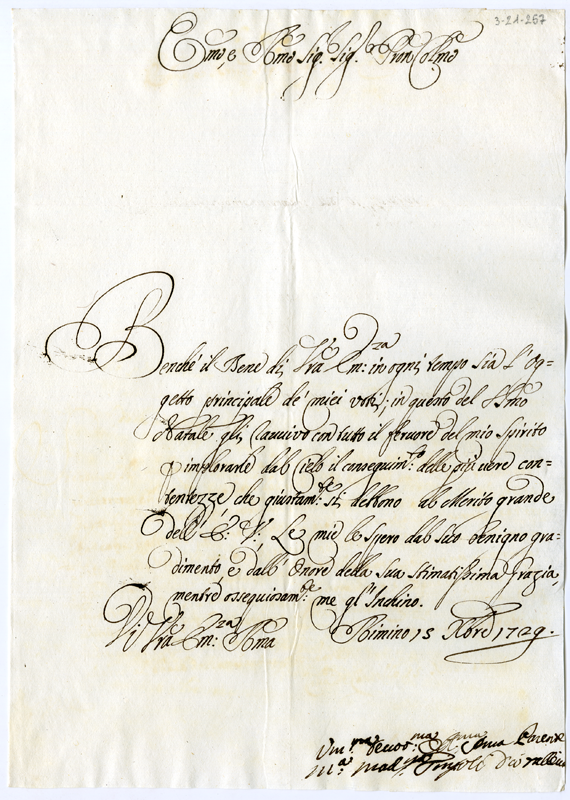 3-21-267
Emo, e Rmo Sig.r Sig.r Pron Colmo
Benché il Bene di Vra Em:za in ogni tempo sia l'Og=
getto principale de' miei voti; in questo del SSmo
Natale gli ravvivo con tutto il fervore del mio Spirito
p implorarle dal Cielo il conseguim:to delle più vere con=
tentezze che giustam:te si debbono al Merito grande
dell' E: V: Le mie le spero dal suo benigno gra=
dimento, e dall' Onore della sua stimatissima grazia,
mentre ossequiosam:te me gl' Inchino.
Di Vra Em:za Rma Rimino 15 Xbre 1729.
Um:ma Devot:ma